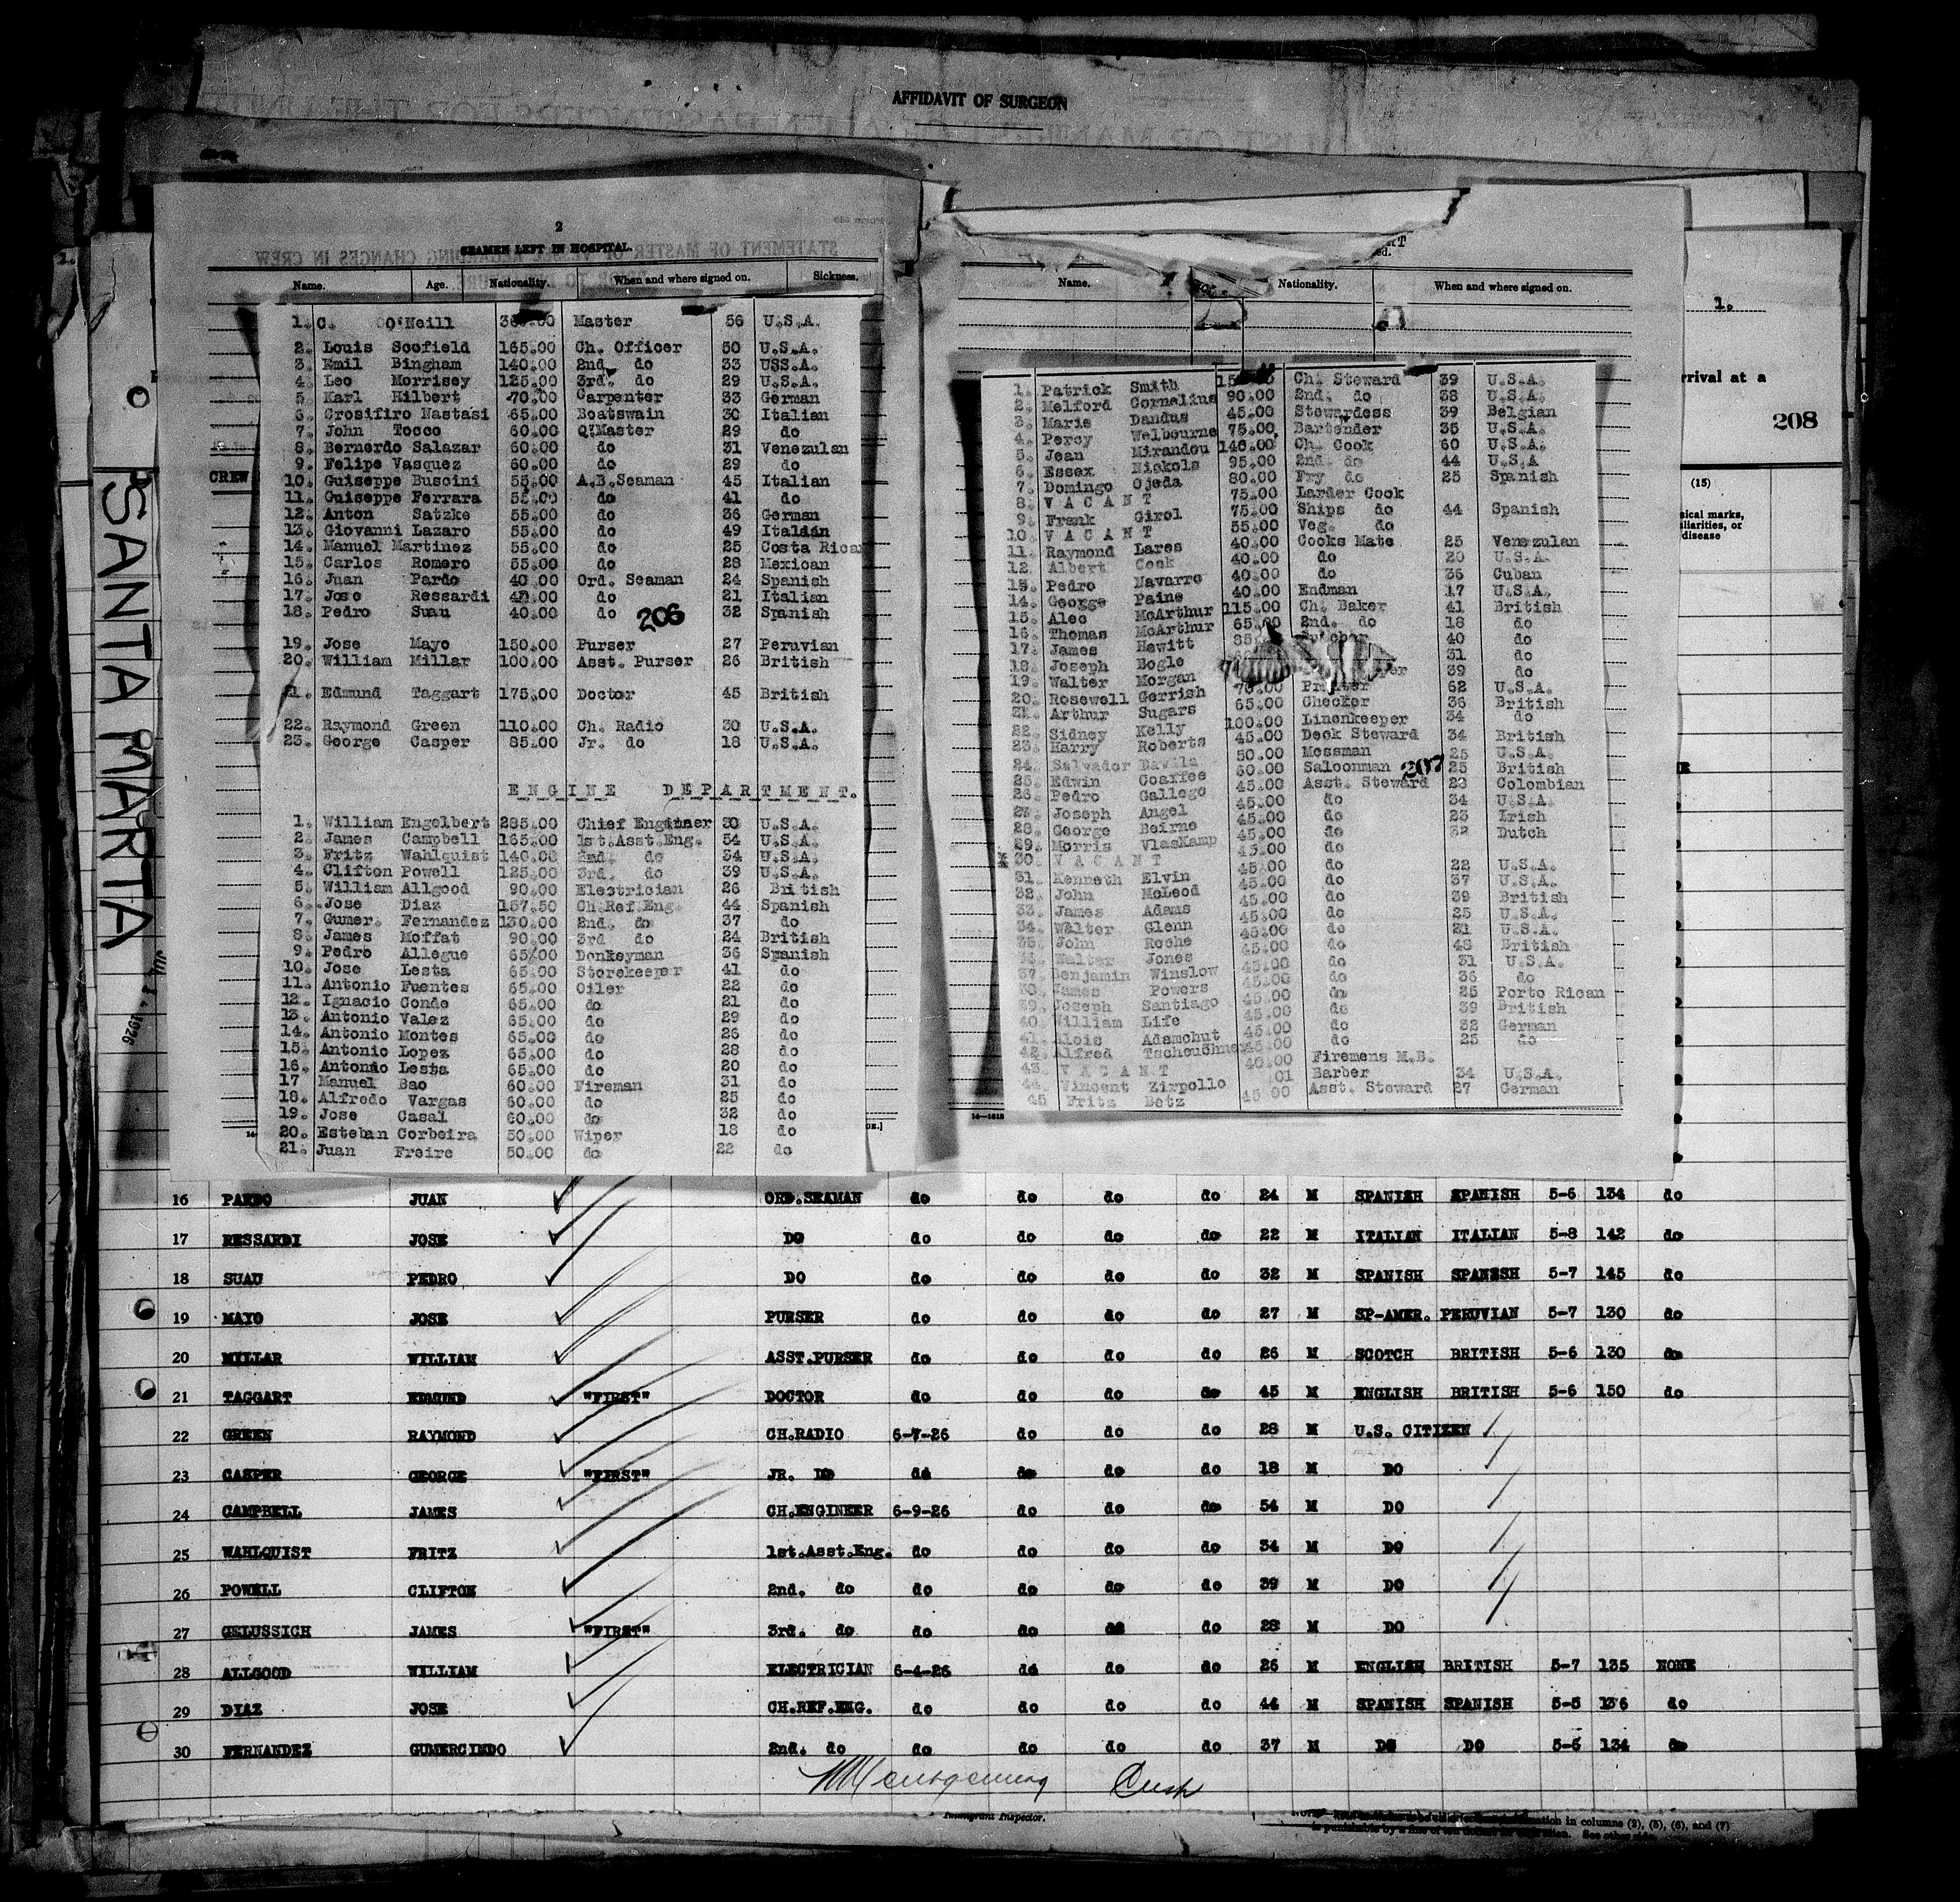 AFFIDAVIT OF SURGEON
2
SEAMEN LEFT IN HOSPITAL.
STATEMENT OF MASTER OF VESSEL REGARDING CHANGES IN CREW
Name. Age. Nationality. When and where signed on. Sickness.
1. C. O'Neill Master 56 U.S.A.
2. Louis Scofield 165.00 Ch. Officer 50 U.S.A.
3. Emil Bingham 140.00 2nd. do 33 USS.A.
4. Leo Morrisey 125.00 3rd. do 29 U.S.A.
5. Karl Hilbert 70.00 Carpenter 33 German
6. Crosifiro Nastasi 65.00 Boatswain 30 Italian
7. John Tocco 60.00 Q'Master 29 do
8. Bernerdo Salazar 60.00 do 31 Venezulan
9. Felipe Vasquez 60.00 do 29 do
CREW
10. Guiseppe Buscini 55.00 A.B.Seaman 45 Italian
11. Guiseppe Ferrara 55.00 do 41 do
12. Anton Satzke 55.00 do 36 German
13. Giovanni Lazaro 55.00 do 49 Italian
14. Manuel Martinez 55.00 do 25 Costa Rican
15. Carlos Romero 55.00 do 28 Mexican
16. Juan Pardo 40.00 Ord. Seaman 24 Spanish
17. Jose Ressardi 40.00 do 21 Italian
18. Pedro Suau 40.00 do 32 Spanish
206
19. Jose Mayo 150.00 Purser 27 Peruvian
20. William Millar 100.00 Asst. Purser 26 British
1. Edmund Taggart 175.00 Doctor 45 British
22. Raymond Green 110.00 Ch. Radio 30 U.S.A.
23. George Casper 85.00 Jr. do 18 U.S.A.
ENGINE DEPARTMENT.
1. William Engelbert 285.00 Chief Engineer 30 U.S.A.
2. James Campbell 165.00 1st.Asst.Eng. 54 U.S.A.
3. Fritz Wahlquist 140.00 2nd. do 34 U.S.A.
4. Clifton Powell 125.00 3rd. do 39 U.S.A.
5. William Allgood 90.00 Electrician 26 British
6. Jose Diaz 157.50 Ch.Ref.Eng. 44 Spanish
7. Gumer. Fernandez 130.00 2nd. do 37 do
8. James Moffat 90.00 3rd do 24 British
9. Pedro Allegue 65.00 Donkeyman 36 Spanish
10. Jose Lesta 65.00 Storekeeper 41 do
11. Antonio Fuentes 65.00 Oiler 22 do
12. Ignacio Conde 65.00 do 21 do
13. Antonio Valez 65.00 do 29 do
14. Antonio Montes 65.00 do 26 do
15. Antonio Lopez 65.00 do 28 do
16. Antonio Lesta 65.00 do 20 do
17 Manuel Bao 60.00 Fireman 31 do
18. Alfredo Vargas 60.00 do 25 do
19. Jose Casal 60.00 do 32 do
20. Esteban Corbeira 50.00 Wiper 18 do
21. Juan Freire 50.00 do 22 do
SANTA MARTA
1926
Name. Nationality. When and where signed on.
1. Patrick Smith Ch. Steward 39 U.S.A.
2. Melford Cornelius 90.00 2nd. do 38 U.S.A.
3. Marie Dandus 45.00 Stewardess 39 Belgian
4. Percy Welbourne 75.00 Bartender 35 U.S.A.
5. Jean Mirandou 140.00 Ch. Cook 60 U.S.A.
6. Essex Nickols 95.00 2nd. do 44 U.S.A
7. Domingo Ojeda 80.00 Fry do 25 Spanish
8. VACANT 75.00 Larder Cook
9. Frank Girol 75.00 Ships do 44 Spanish
10. VACANT 55.00 Veg. do
11. Raymond Lares 40.00 Cooks Mate 25 Venezulan
12. Albert Cook 40.00 do 20 U.S.A.
13. Pedro Navarro 40.00 do 36 Cuban
14. George Paine 40.00 Endman 17 U.S.A.
15. Alec McArthur 115.00 Ch. Baker 41 British
16. Thomas McArthur 65.00 2nd. do 18 do
17. James Hewitt 40 do
18. Joseph Bogle 31 do
19. Walter Morgan 39 do
20. Rosewell Gerrish 62 U.S.A.
21. Arthur Sugars 65.00 Checker 36 British
22. Sidney Kelly 100.00 Linenkeeper 34 do
23. Harry Roberts 45.00 Deck Steward 34 British
24. Salvador Davila 50.00 Messman 25 U.S.A.
25. Edwin Coaffee 60.00 Saloonman 25 British
207
26. Pedro Gallego 45.00 Asst. Steward 23 Colombian
27. Joseph Angel 45.00 do 34 U.S.A.
28. George Beirne 45.00 do 23 Irish
29. Morris VlasKamp 45.00 do 32 Dutch
30. VACANT 45.00 do
31. Kenneth Elvin 45.00 do 22 U.S.A.
32. John McLeod 45.00 do 37 U.S.A.
33. James Adams 45.00 do 39 British
34. Walter Glenn 45.00 do 25 U.S.A.
35. John Roche 45.00 do 21 U.S.A.
36. Walter Jones 45.00 do 48 British
37. Benjamin Winslow 45.00 do 31 U.S.A.
38. James Powers 45.00 do 36 do
39. Joseph Santiago 45.00 do 25 Porto Rican
40. William Life 45.00 do 39 British
41. Alois Adamchut 45.00 do 32 German
42. Alfred Tscheuchner 45.00 do 25 do
43. VACANT 40.00 Firemens M.B.
44. Vincent Zirpollo 01 Barber 34 U.S.A.
45 Fritz Betz 45.00 Asst. Steward 27 German
1.
rrival at a
208
(15)
sical marks,
liarities, or
disease
16 PARDO JUAN ORD.SEAMAN do do do do 24 M SPANISH SPANISH 5-6 134 do
17 RESSARDI JOSE DO do do do do 22 M ITALIAN ITALIAN 5-8 142 do
18 SUAU PEDRO DO do do do do 32 M SPANISH SPANISH 5-7 145 do
19 MAYO JOSE PURSER do do do do 27 M SP-AMER. PERUVIAN 5-7 130 do
20 MILLAR WILLIAM ASST.PURSER do do do do 26 M SCOTCH BRITISH 5-6 130 do
21 TAGGART EDMUND "FIRST" DOCTOR do do do do 45 M ENGLISH BRITISH 5-6 150 do
22 GREEN RAYMOND CH.RADIO 6-7-26 do do do 28 M U.S. CITIZEN
23 CASPER GEORGE "FIRST" JR. DO do do do do 18 M DO
24 CAMPBELL JAMES CH.ENGINEER 6-9-26 do do do 54 M DO
25 WAHLQUIST FRITZ 1st.Asst.Eng. do do do do 34 M DO
26 POWELL CLIFTON 2nd. do do do do do 39 M DO
27 GELUSSICH JAMES "FIRST" 3rd. do do do do do 28 M DO
28 ALLGOOD WILLIAM ELECTRICIAN 6-4-26 do do do 26 M ENGLISH BRITISH 5-7 135 NONE
29 DIAZ JOSE CH.REF.ENG. do do do do 44 M SPANISH SPANISH 5-5 136 do
30 FERNANDEZ GUMERCINDO 2nd. do do do do do 37 M DO DO 5-6 134 do
Immigrant Inspector.
in columns (2), (5), (6), and (7)